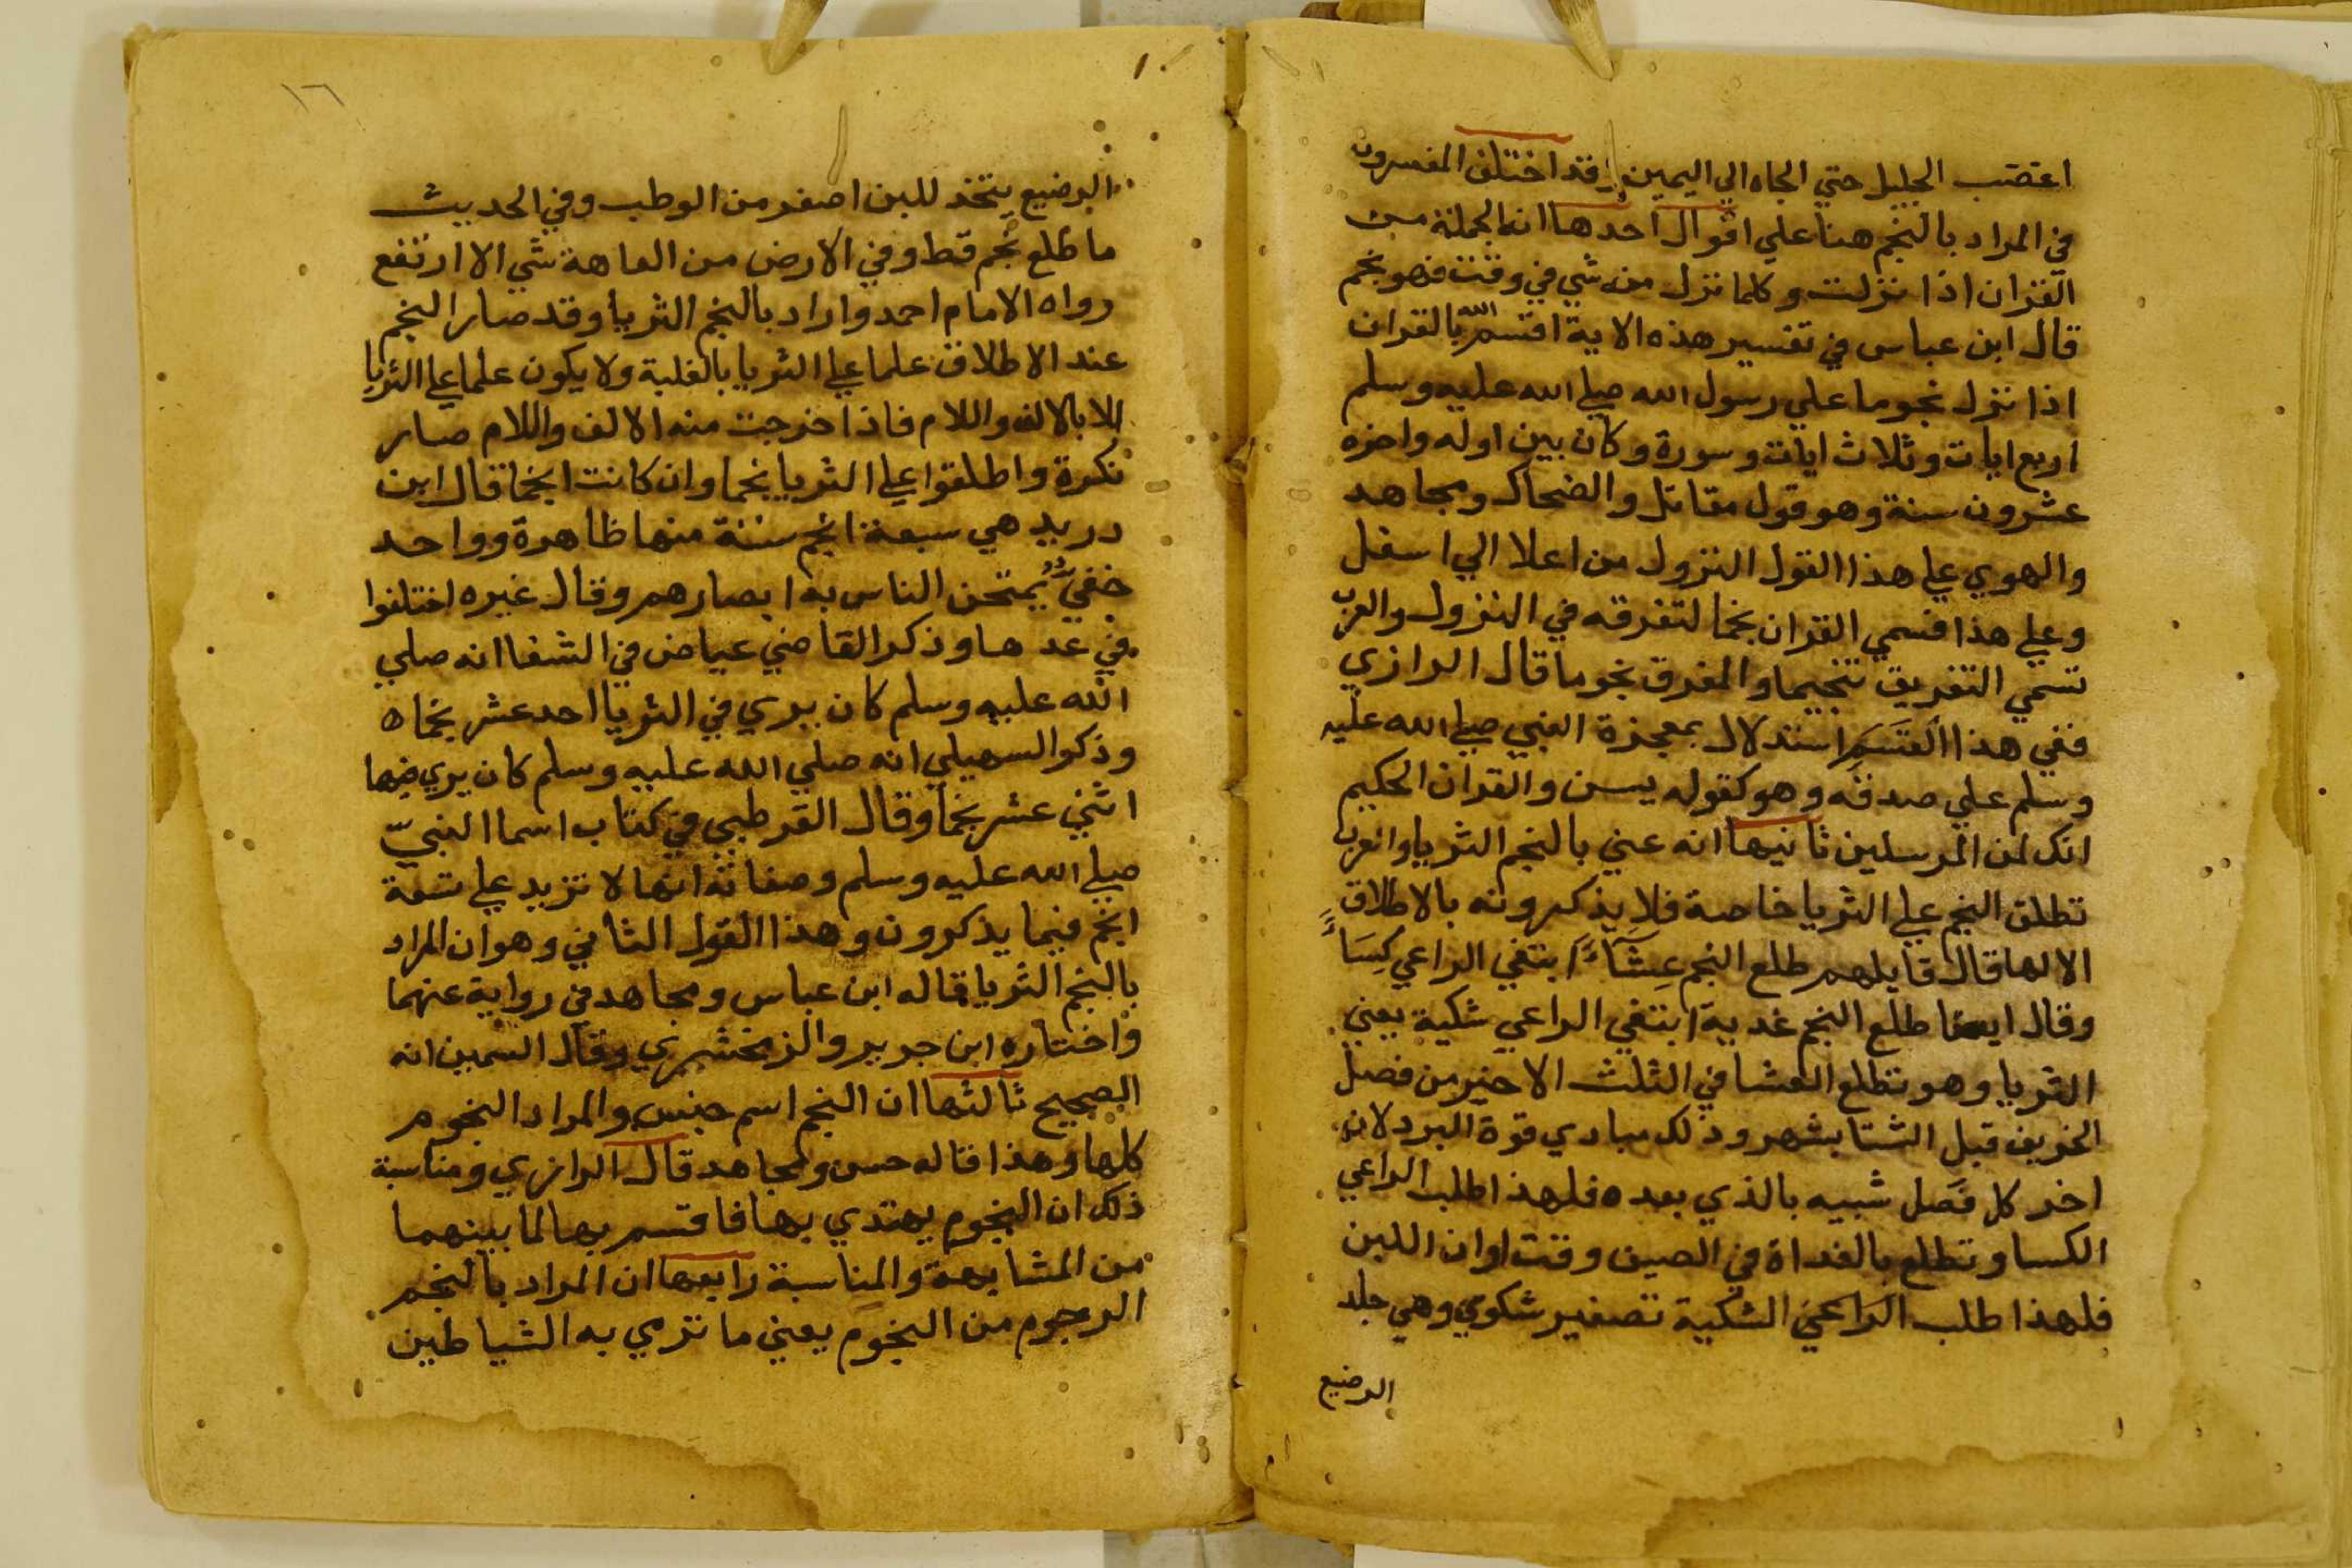 اغتضب الجليل حتي الجاه الي اليمين وقد اختلف المفسرون
في المراد بالنجم هنا علي اقوال احدها انه الجملة من
القران اذا نزلت وكلما نزل منه شي في وقت فهو نجم
قال ابن عباس في تفسير هذه الاية اقسم الله بالقران
اذا نزل نجوما علي رسول الله صلي الله عليه وسلم
اربع ايات وثلاث ايات وسورة وكان بين اوله واخره
عشرون سنة وهو قول مقاتل والضحاك ومجاهد
والهوي علي هذا القول النزول من اعلا الي اسفل
وعلي هذا فسمي القران نجما لتفرقه في النزول والعرب
تسمي التفريق تنجيما والمفرق نجوما قال الرازي
ففي هذا القَسَمِ استدلال بمعجزة النبي صلي الله عليه
وسلم علي صدقه وهو كقوله يسن والقران الحكيم
انك لمن المرسلين ثانيها انه عني بالنجم الثريا والعرب
تطلق النجم علي الثريا خاصة فلا يذكرونه بالاطلاق
الا لها قال قايلهم طلع النجم عِشَآءً ابتغي الراعي كِسَاءً
وقال ايضا طلع النجم غدية ابتغي الراعي شكية يعني
الثريا وهو تطلع العشا في الثلث الاخير من فصل
الخريف قبل الشتا بشهر وذلك مبادي قوة البرد لان
اخر كل فَصل شبيه بالذي بعده فلهذا طلب الراعي
الكسا وتطلع بالغداة في الصيف وقت اوان اللبن
فلهذا طلب الراعي الشكية تصغير شكوي وهي جلد
الرضيع
١٦
الرضيع يتخذ للبن اصغر من الوطب وفي الحديث
ما طلع نجم قط وفي الارض من العاهة شي الا ارتفع
رواه الامام احمد واراد بالنجم الثريا وقد صار النجم
عند الاطلاق علما علي الثريا بالغلبة ولا يكون علما علي الثريا
الا بالالف واللام فاذا خرجت منه الالف واللام صار
نكرة واطلقوا علي الثريا نجما وان كانت انجما قال ابن
دريد هي سبعة انجم ستة منها ظاهرة وواحد
خفيٌّ يُمتحن الناس به ابصارهم وقال غيره اختلفوا
في عدها وذكر القاضي عياض في الشفا انه صلي
الله عليه وسلم كان يري في الثريا احد عشر نجما ه
وذكر السهيلي انه صلي الله عليه وسلم كان يري فيها
اثني عشر نجما وقال القرطبي في كتاب اسما النبيّ
صلي الله عليه وسلم وصفاته انها لا تزيد علي تسعة
انجم فيما يذكرون وهذا القول الثاني وهو ان المراد
بالنجم الثريا قاله ابن عباس ومجاهد في رواية عنهما
واختاره ابن جرير والزمخشري وقال السمين انه
الصحيح ثالثها ان النجم اسم جنس والمراد النجوم
كلها وهذا قاله حسن ومجاهد قال الرازي ومناسبة
ذلك ان النجوم يهتدي بها فاقسم بها لما بينهما
من المشابهة والمناسبة رابعها ان المراد بالنجم
الرجوم من النجوم يعني ما ترمي به الشياطين